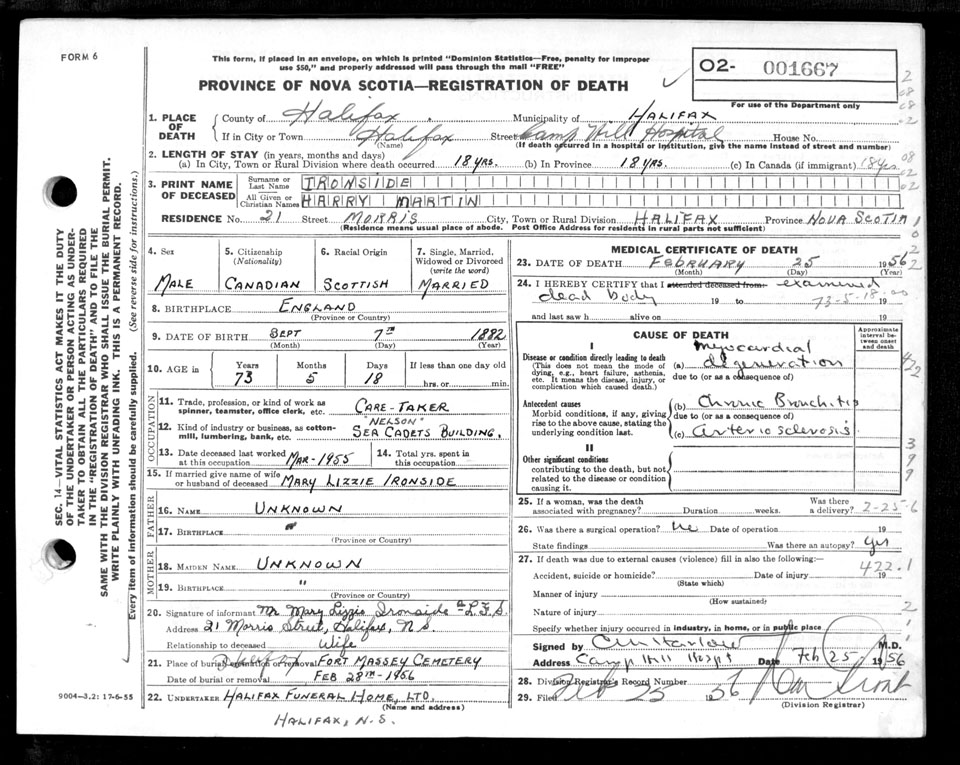 FORM 6
This form, if placed in an envelope, on which is printed "Dominion Statistics—Free, penalty for improper
use $50," and properly addressed will pass through the mail "FREE"
PROVINCE OF NOVA SCOTIA—REGISTRATION OF DEATH
O2- 001667
For use of the Department only
1. PLACE OF DEATH
County of Halifax Municipality of HALIFAX
If in City or Town Halifax Street Camp Hill Hospital House No.
(Name) (If death occurred in a hospital or institution, give the name instead of street and number)
2. LENGTH OF STAY (in years, months and days)
(a) In City, Town or Rural Division where death occurred 18 YRS. (b) In Province 18 YRS. (c) In Canada (if immigrant) 18 yrs.
3. PRINT NAME OF DECEASED
Surname or Last Name IRONSIDE
All Given or Christian Names HARRY MARTIN
RESIDENCE No. 21 Street MORRIS City, Town or Rural Division HALIFAX Province NOVA SCOTIA
(Residence means usual place of abode. Post Office Address for residents in rural parts not sufficient)
4. Sex
MALE
5. Citizenship
(Nationality)
CANADIAN
6. Racial Origin
SCOTTISH
7. Single, Married,
Widowed or Divorced
(write the word)
MARRIED
8. BIRTHPLACE ENGLAND
(Province or Country)
9. DATE OF BIRTH SEPT 7TH 1882
(Month) (Day) (Year)
10. AGE in
Years Months Days If less than one day old
73 5 18 hrs. or min.
OCCUPATION
11. Trade, profession, or kind of work as
spinner, teamster, office clerk, etc. CARE-TAKER
12. Kind of industry or business, as cotton-
mill, lumbering, bank, etc. "NELSON" SEA CADETS BUILDING.
13. Date deceased last worked
at this occupation MAR-1955
14. Total yrs. spent in
this occupation
15. If married give name of wife
or husband of deceased MARY LIZZIE IRONSIDE
FATHER
16. NAME UNKNOWN
17. BIRTHPLACE "
(Province or Country)
MOTHER
18. MAIDEN NAME UNKNOWN
19. BIRTHPLACE "
(Province or Country)
20. Signature of informant Mr Mary Lizzie Ironside
Address 21 Morris Street, Halifax, N.S.
Relationship to deceased Wife
21. Place of burial, cremation or removal FORT MASSEY CEMETERY
Date of burial or removal FEB 28TH-1956
22. UNDERTAKER HALIFAX FUNERAL HOME, LTD.
(Name and address)
HALIFAX, N.S.
MEDICAL CERTIFICATE OF DEATH
23. DATE OF DEATH FEBRUARY 25 1956
(Month) (Day) (Year)
24. I HEREBY CERTIFY that I attended deceased from: examined
dead body 19 to 73-5-18-00 19
and last saw h alive on 19
CAUSE OF DEATH
Approximate
interval be-
tween onset
and death
I
Disease or condition directly leading to death
(This does not mean the mode of
dying, e.g., heart failure, asthenia,
etc. It means the disease, injury, or
complication which caused death.)
(a) Myocardial degeneration
due to (or as a consequence of)
Antecedent causes
Morbid conditions, if any, giving
rise to the above cause, stating the
underlying condition last.
(b) Chronic Bronchitis
due to (or as a consequence of)
(c) Arteriosclerosis
II
Other significant conditions
contributing to the death, but not
related to the disease or condition
causing it.
25. If a woman, was the death
associated with pregnancy? Duration weeks.
Was there
a delivery? 2-25-6
26. Was there a surgical operation? No Date of operation 19
State findings Was there an autopsy? Yes
27. If death was due to external causes (violence) fill in also the following:—
422.1
Accident, suicide or homicide? Date of injury 19
(State which)
Manner of injury
(How sustained)
Nature of injury
Specify whether injury occurred in industry, in home, or in public place
Signed by M.D.
Address Camp Hill Hospt Date Feb 25 1956
28. Division Registrar's Record Number
29. Filed Feb 25 1956
(Division Registrar)
SEC. 14—VITAL STATISTICS ACT MAKES IT THE DUTY
OF THE UNDERTAKER OR PERSON ACTING AS UNDER-
TAKER TO OBTAIN ALL THE PARTICULARS REQUIRED
IN THE "REGISTRATION OF DEATH" AND TO FILE THE
SAME WITH THE DIVISION REGISTRAR WHO SHALL ISSUE THE BURIAL PERMIT.
WRITE PLAINLY WITH UNFADING INK. THIS IS A PERMANENT RECORD.
Every item of information should be carefully supplied. (See reverse side for instructions.)
9004-3.2: 17-6-55